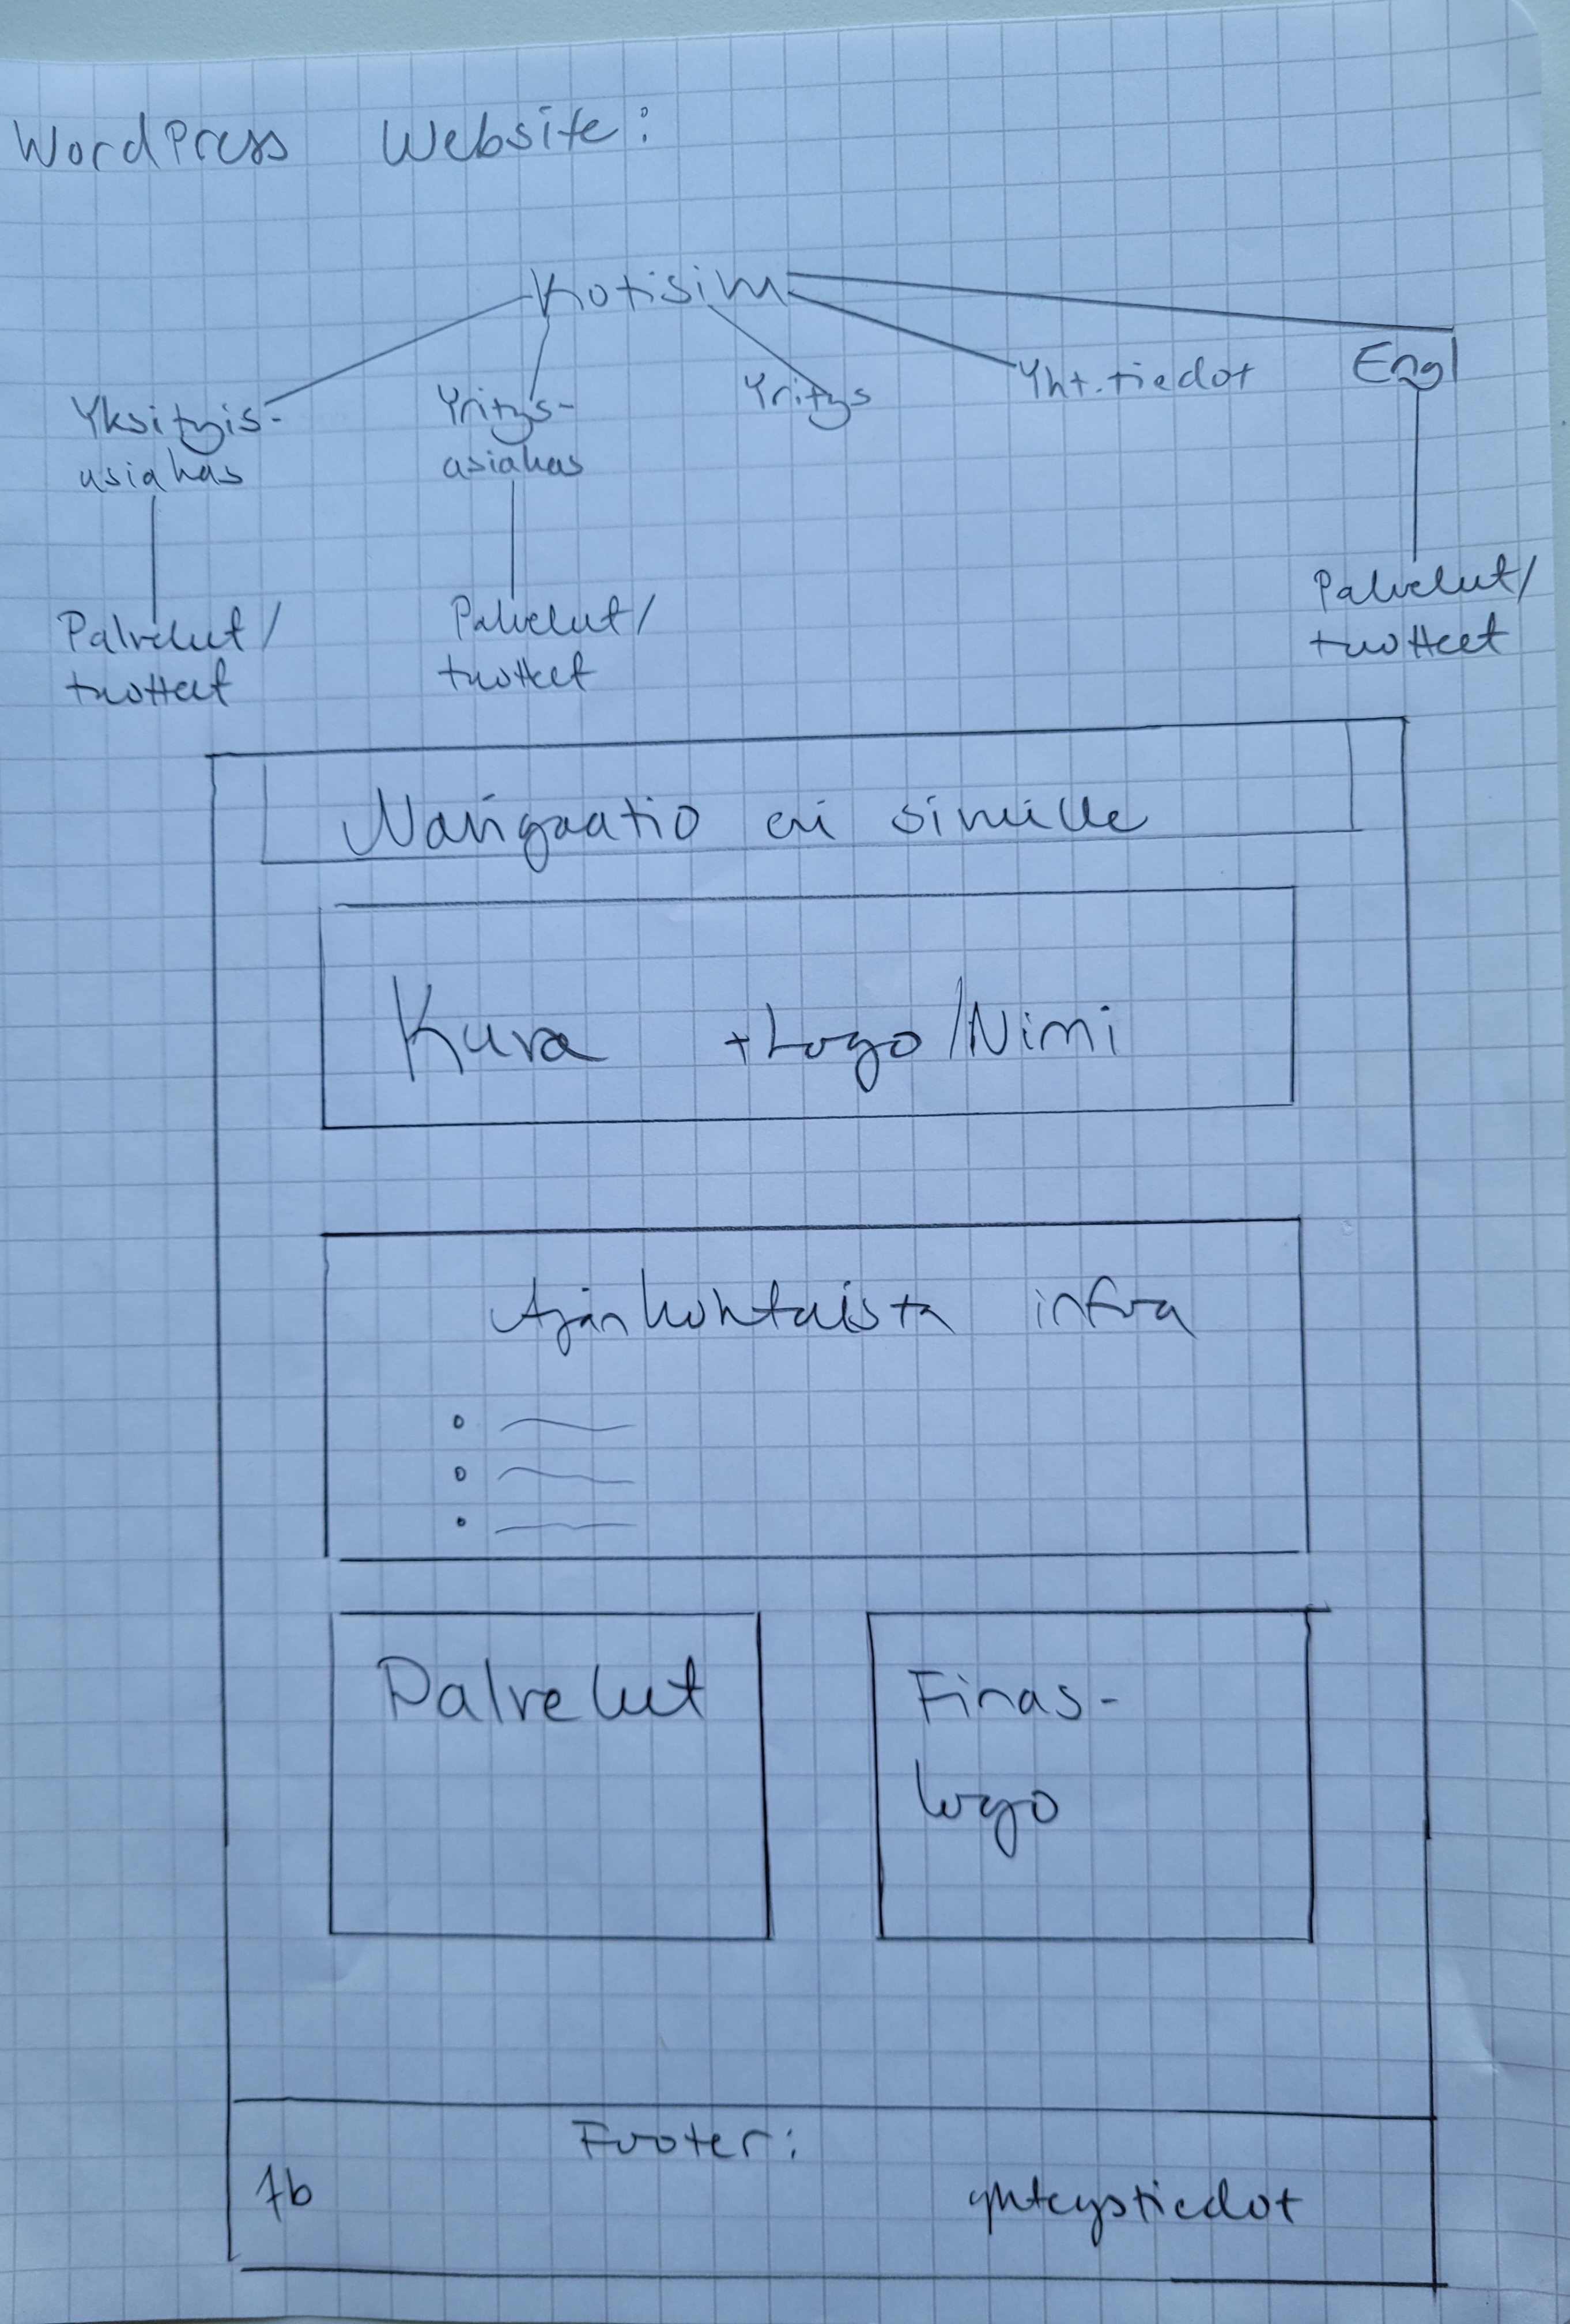 WordPress Website:
Kotisivu
Yksityis-
asiakas
Yritys-
asiakas
Yritys
Yht.tiedot
Engl
Palvelut/
tuotteet
Palvelut/
tuotteet
Palvelut/
tuotteet
Navigaatio eri sivuille
Kuva +Logo/Nimi
Ajankohtaista infoa
Palvelut
Finas-
logo
Footer:
fb
yhteystiedot